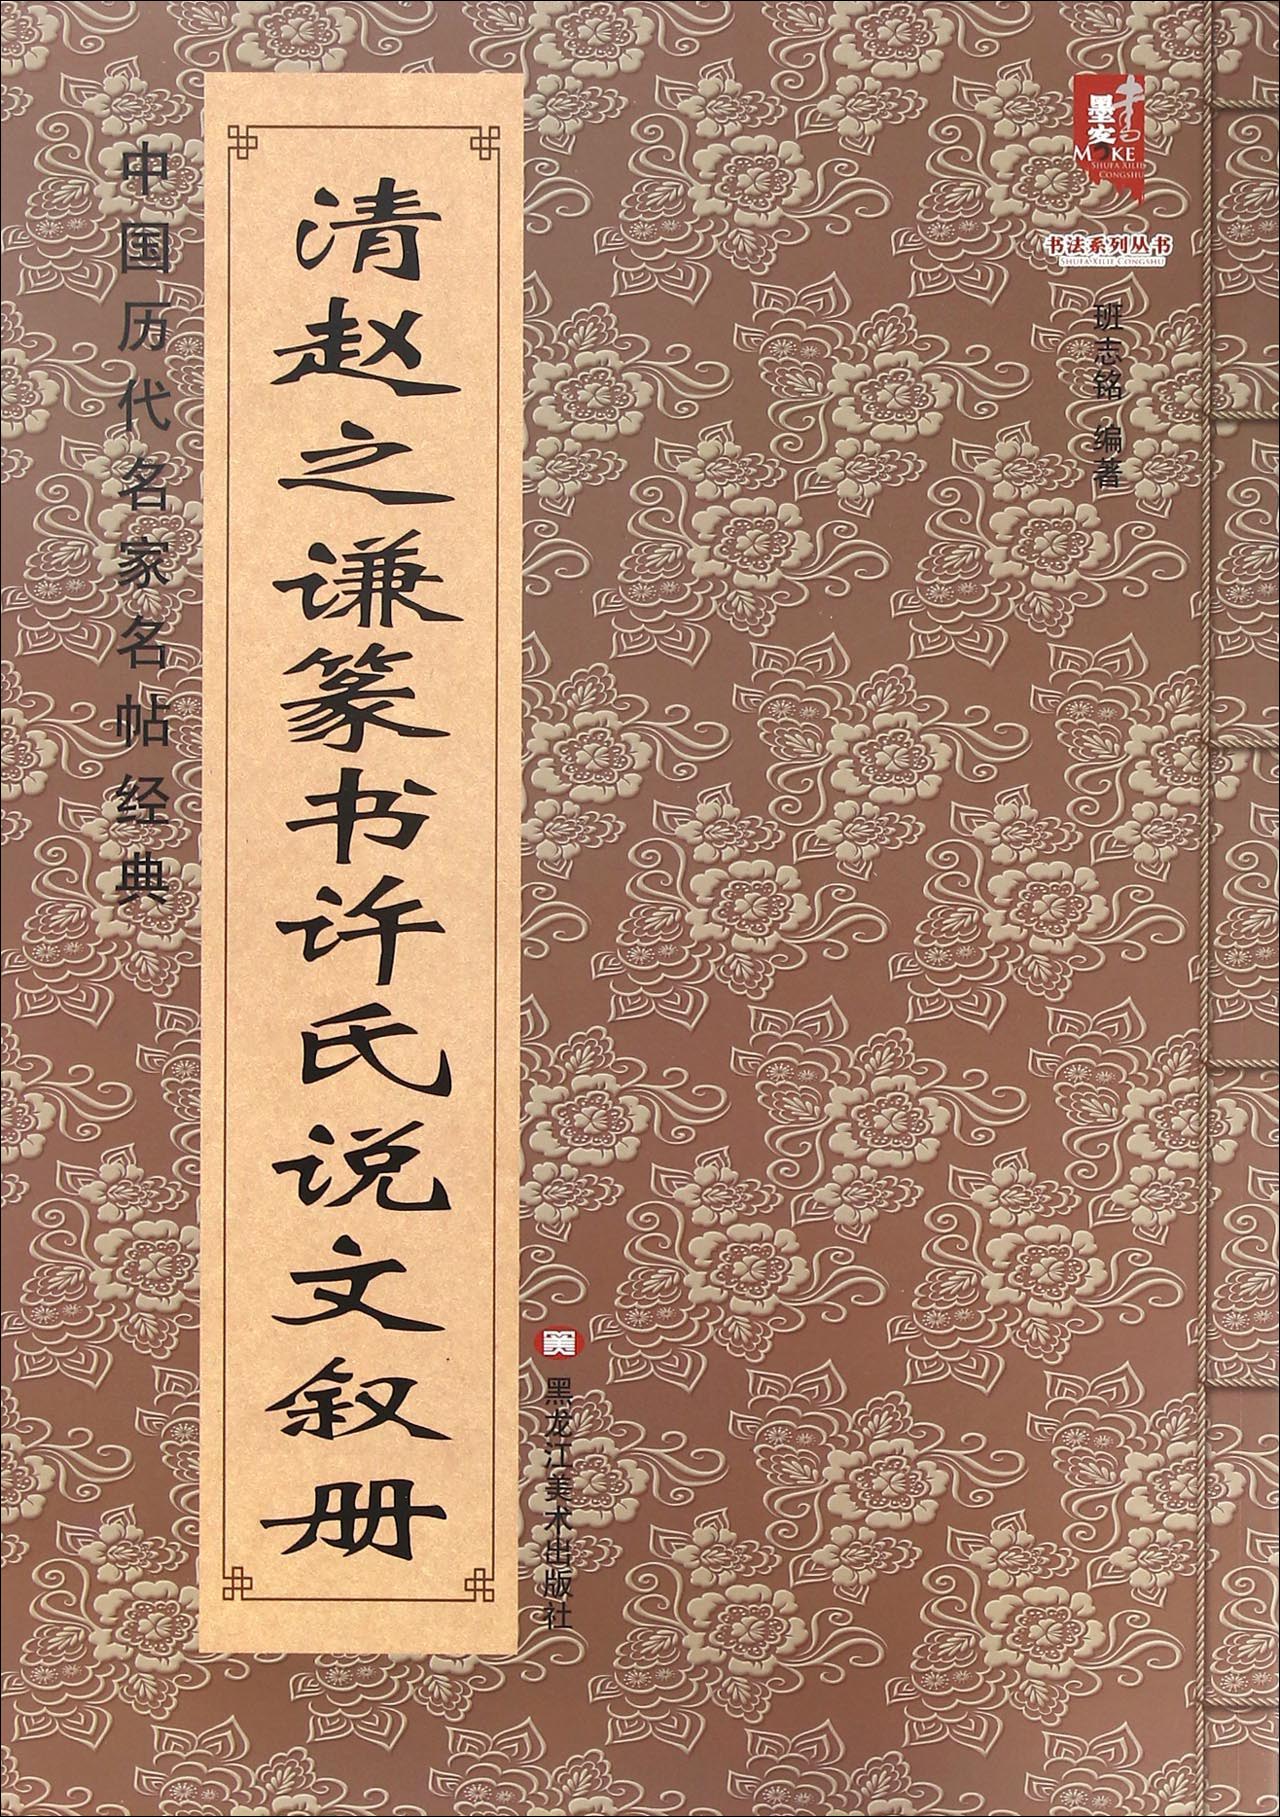 中国历代名家名帖经典
清赵之谦篆书许氏说文叙册
墨客
书
MOKE
SHUFA XILIE
CONGSHU
书法系列丛书
SHUFA XILIE CONGSHU
班志铭 编著
美
黑龙江美术出版社